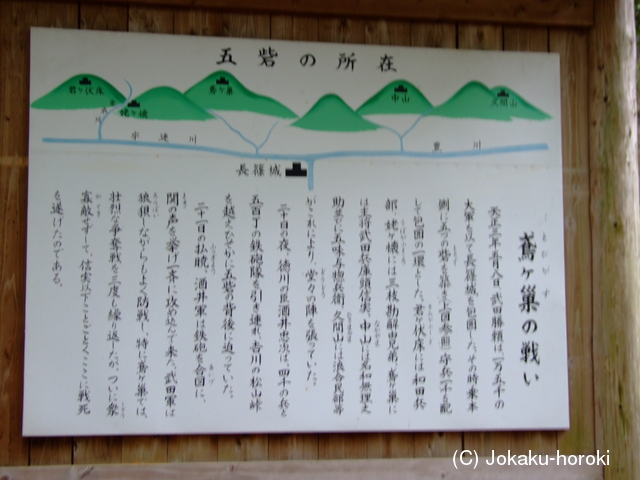 五砦の所在
君ヶ伏床
姥ヶ懐
鳶ヶ巣
中山
久間山
宇連川
豊川
長篠城
鳶ヶ巣の戦い
天正三年五月八日、武田勝頼は一万五千の
大軍を以て長篠城を包囲した。その時乗本
側に五つの砦を築き(上図参照)守兵一千を配
して包囲の一環とした。君ヶ伏床には和田兵
部、姥ヶ懐には三枝勘解由兄弟、鳶ヶ巣に
は主将武田兵庫頭信実、中山には名和無理之
助並びに五味与惣兵衛、久間山は浪合民部等
がこれに より、堂々の陣を張っていた。
二十日の夜、徳川の臣酒井忠次は、四千の兵と
五百丁の鉄砲隊を引き連れ、吉川の松山峠
を越えひそかに五砦の背後に迫っていた。
二十一日の払暁、酒井軍は鉄砲を合図に、
閧の声を挙げ一斉に攻め込んで来た。武田軍は
狼狽しながらもよく防戦し、特に鳶ヶ巣では、
壮烈な争奪戦を三度も繰り返したが、ついに衆
寡敵せずして、信実以下ことごとくここに戦死
を遂げたのである。
(C) Jokaku-horoki